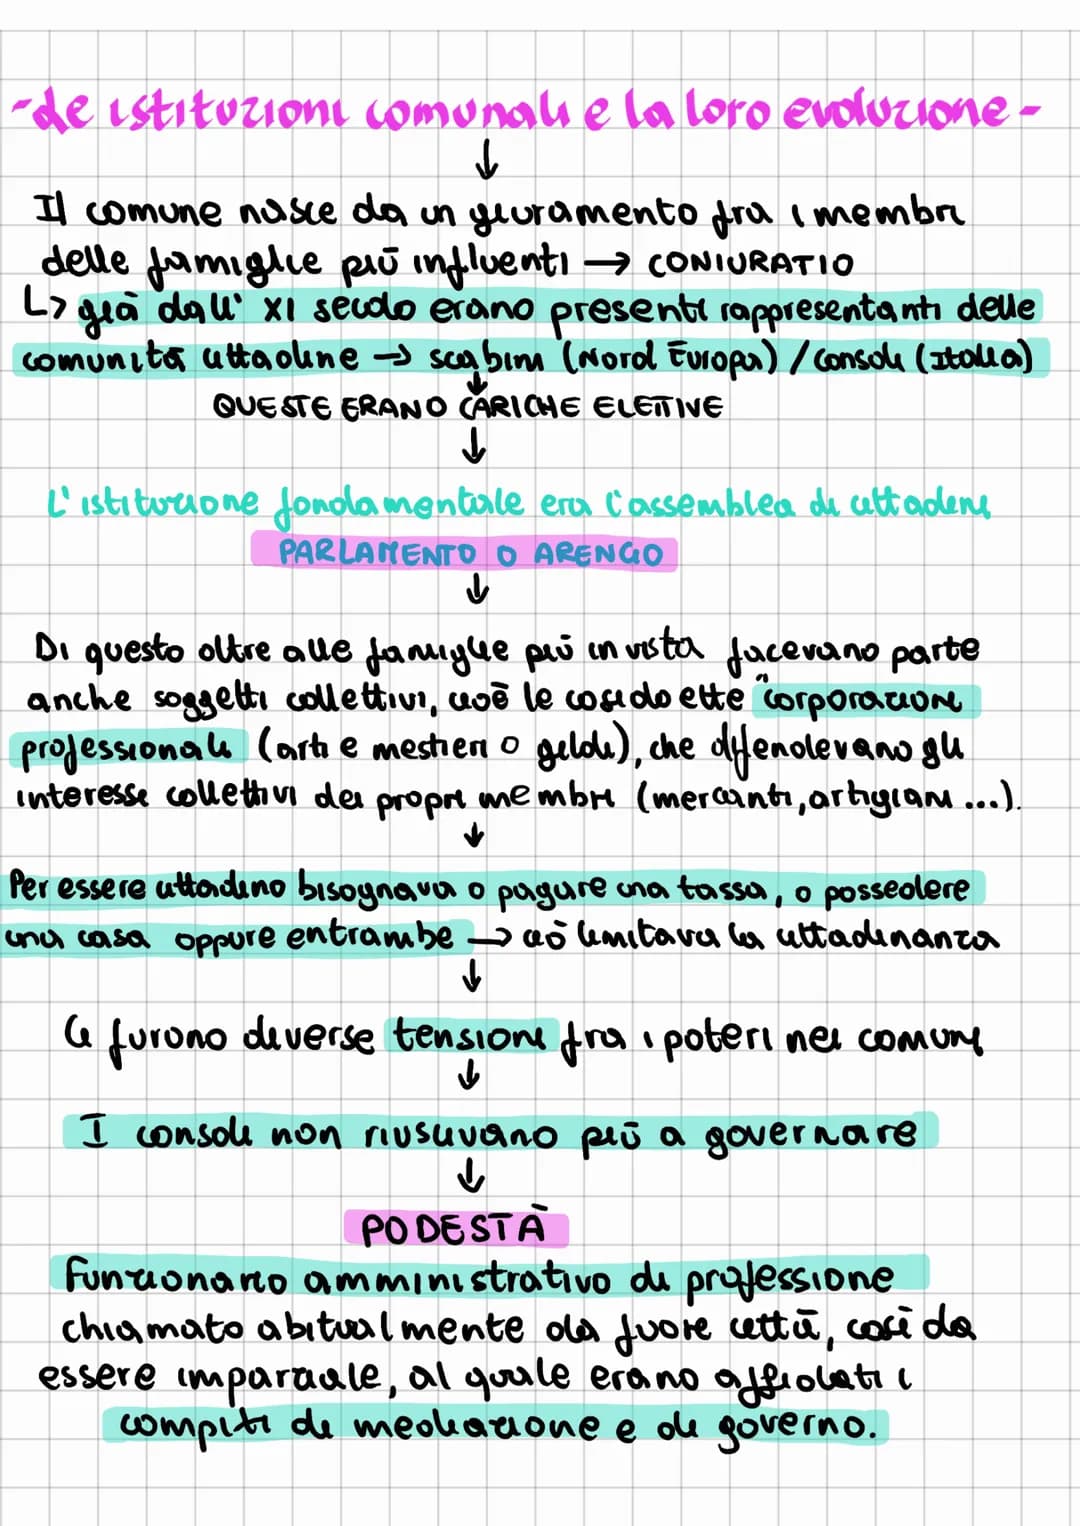 -Le istituzioni comunali e la loro evoluzione-
↓
Il comune nasce da un giuramento fra i membri
delle famiglie più influenti → CONIURATIO
↳ già dall' XI secolo erano presenti rappresentanti delle
comunità cittadine → scabini (Nord Europa) / consoli (Italia)
↓
QUESTE ERANO CARICHE ELETTIVE
↓
L'istituzione fondamentale era l'assemblea di cittadini
PARLAMENTO O ARENGO
↓
Di questo oltre alle famiglie più in vista facevano parte
anche soggetti collettivi, cioè le cosiddette "corporazioni
professionali (arti e mestieri o gilde), che difendevano gli
interesse collettivi dei propri membri (mercanti, artigiani ...).
↓
Per essere cittadino bisognava o pagare una tassa, o possedere
una casa oppure entrambe → ciò limitava la cittadinanza
↓
Ci furono diverse tensioni fra i poteri nei comuni
↓
I consoli non riuscivano più a governare
↓
PODESTÀ
Funzionario amministrativo di professione
chiamato abitualmente da fuori città, così da
essere imparziale, al quale erano affidati i
compiti di mediazione e di governo.